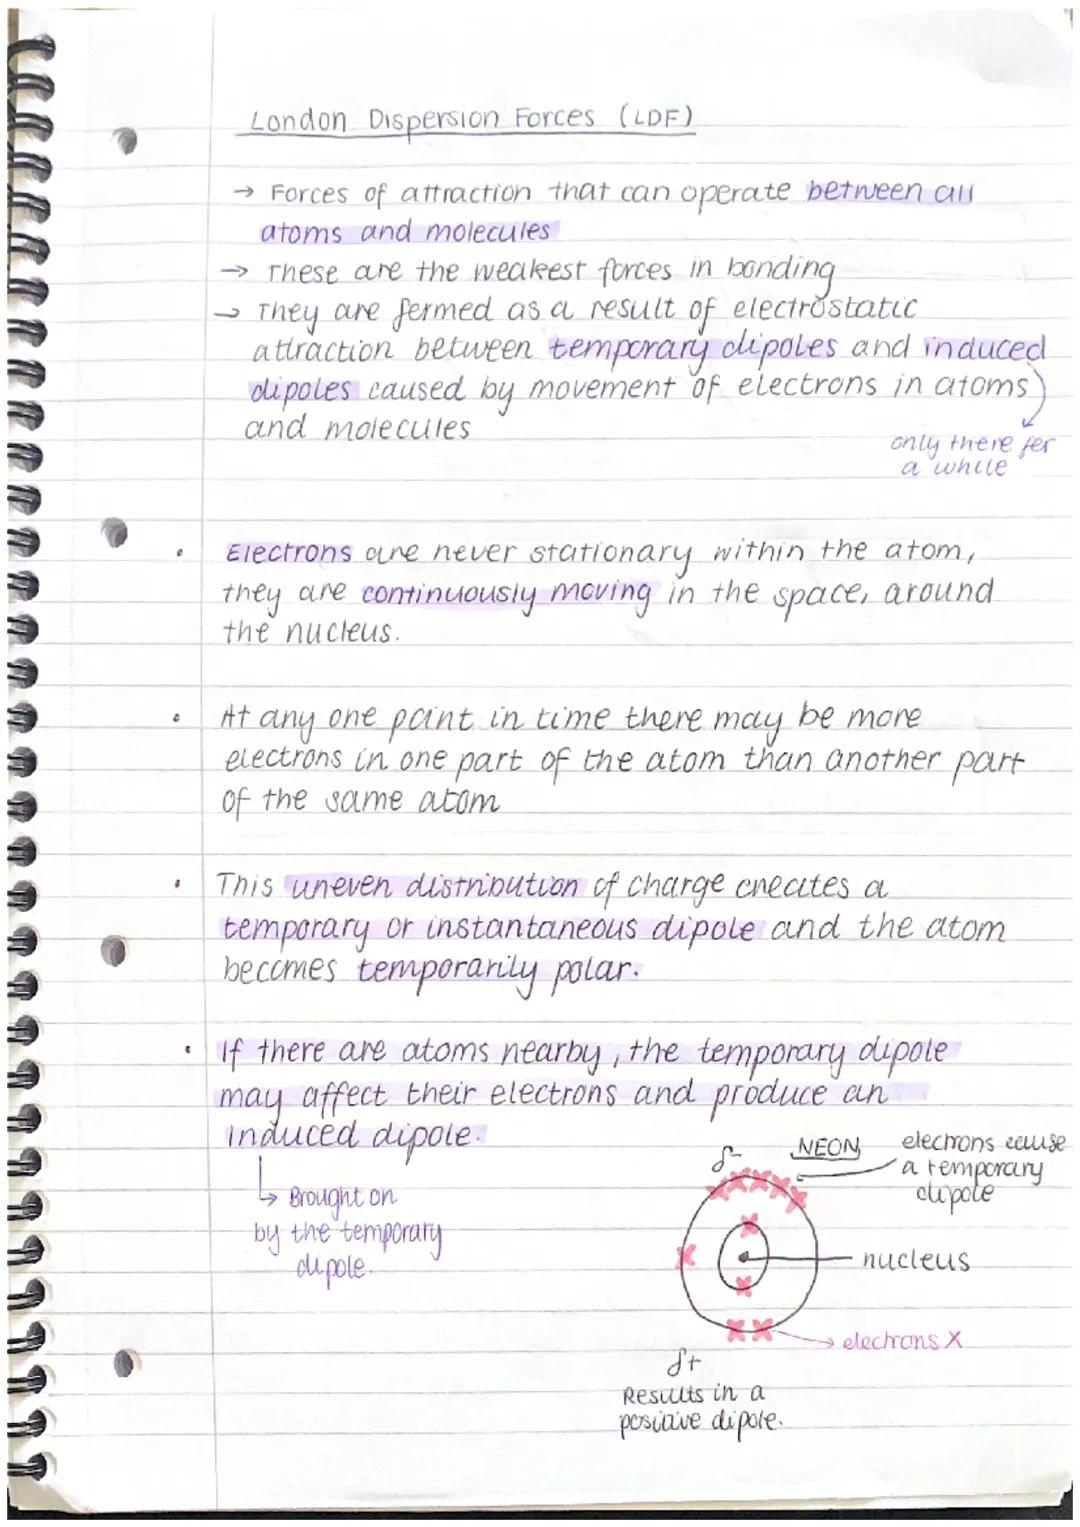 London Dispersion Forces (LDF)
→ Forces of attraction that can operate between all
atoms and molecules
→ These are the weakest forces in bonding
→ They are formed as a result of electrostatic
attraction between temporary dipoles and induced
dipoles caused by movement of electrons in atoms
and molecules
only there for
a while
• Electrons are never stationary within the atom,
they are continuously moving in the space, around
the nucleus.
• At any one point in time there may be more
electrons in one part of the atom than another part
of the same atom
• This uneven distribution of charge creates a
temporary or instantaneous dipole and the atom
becomes temporarily polar.
• If there are atoms nearby, the temporary dipole
may affect their electrons and produce an
induced dipole.
↳ Brought on
by the temporary
dipole.
δ-
NEON
electrons cause
a temporary
dipole
nucleus
→ electrons X
δ+
Results in a
positive dipole.